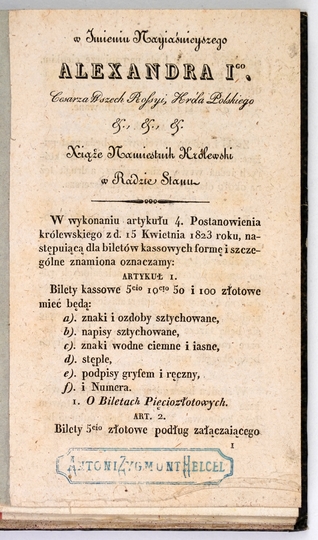 w Imieniu Nayiaśnieyszego
ALEXANDRA I<sup>GO</sup>.
Cesarza Wszech Rossyi, Króla Polskiego
&., &., &.
Xiąże Namiestnik Królewski
w Radzie Stanu
W wykonaniu artykułu 4. Postanowienia
królewskiego z d. 15 Kwietnia 1823 roku, na-
stępuiącą dla biletów kassowych formę i szcze-
gólne znamiona oznaczamy:
ARTYKUŁ 1.
Bilety kassowe 5<sup>cio</sup> 10<sup>cio</sup> 50 i 100 złotowe
mieć będą:
a). znaki i ozdoby sztychowane,
b). napisy sztychowane,
c). znaki wodne ciemne i iasne,
d). stęple,
e). podpisy gryfem i ręczny,
f). i Numera.
1. O Biletach Pięciozłotowych.
ART. 2.
Bilety 5<sup>cio</sup> złotowe podług załączaiącego
1
ANTONI ZYGMUNT HELCEL